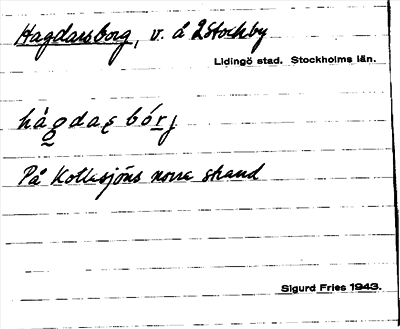 Hagdarsborg, v. å 2 Stockby
Lidingö stad. Stockholms län.
På Kottlasjöns norra strand
Sigurd Fries 1943.